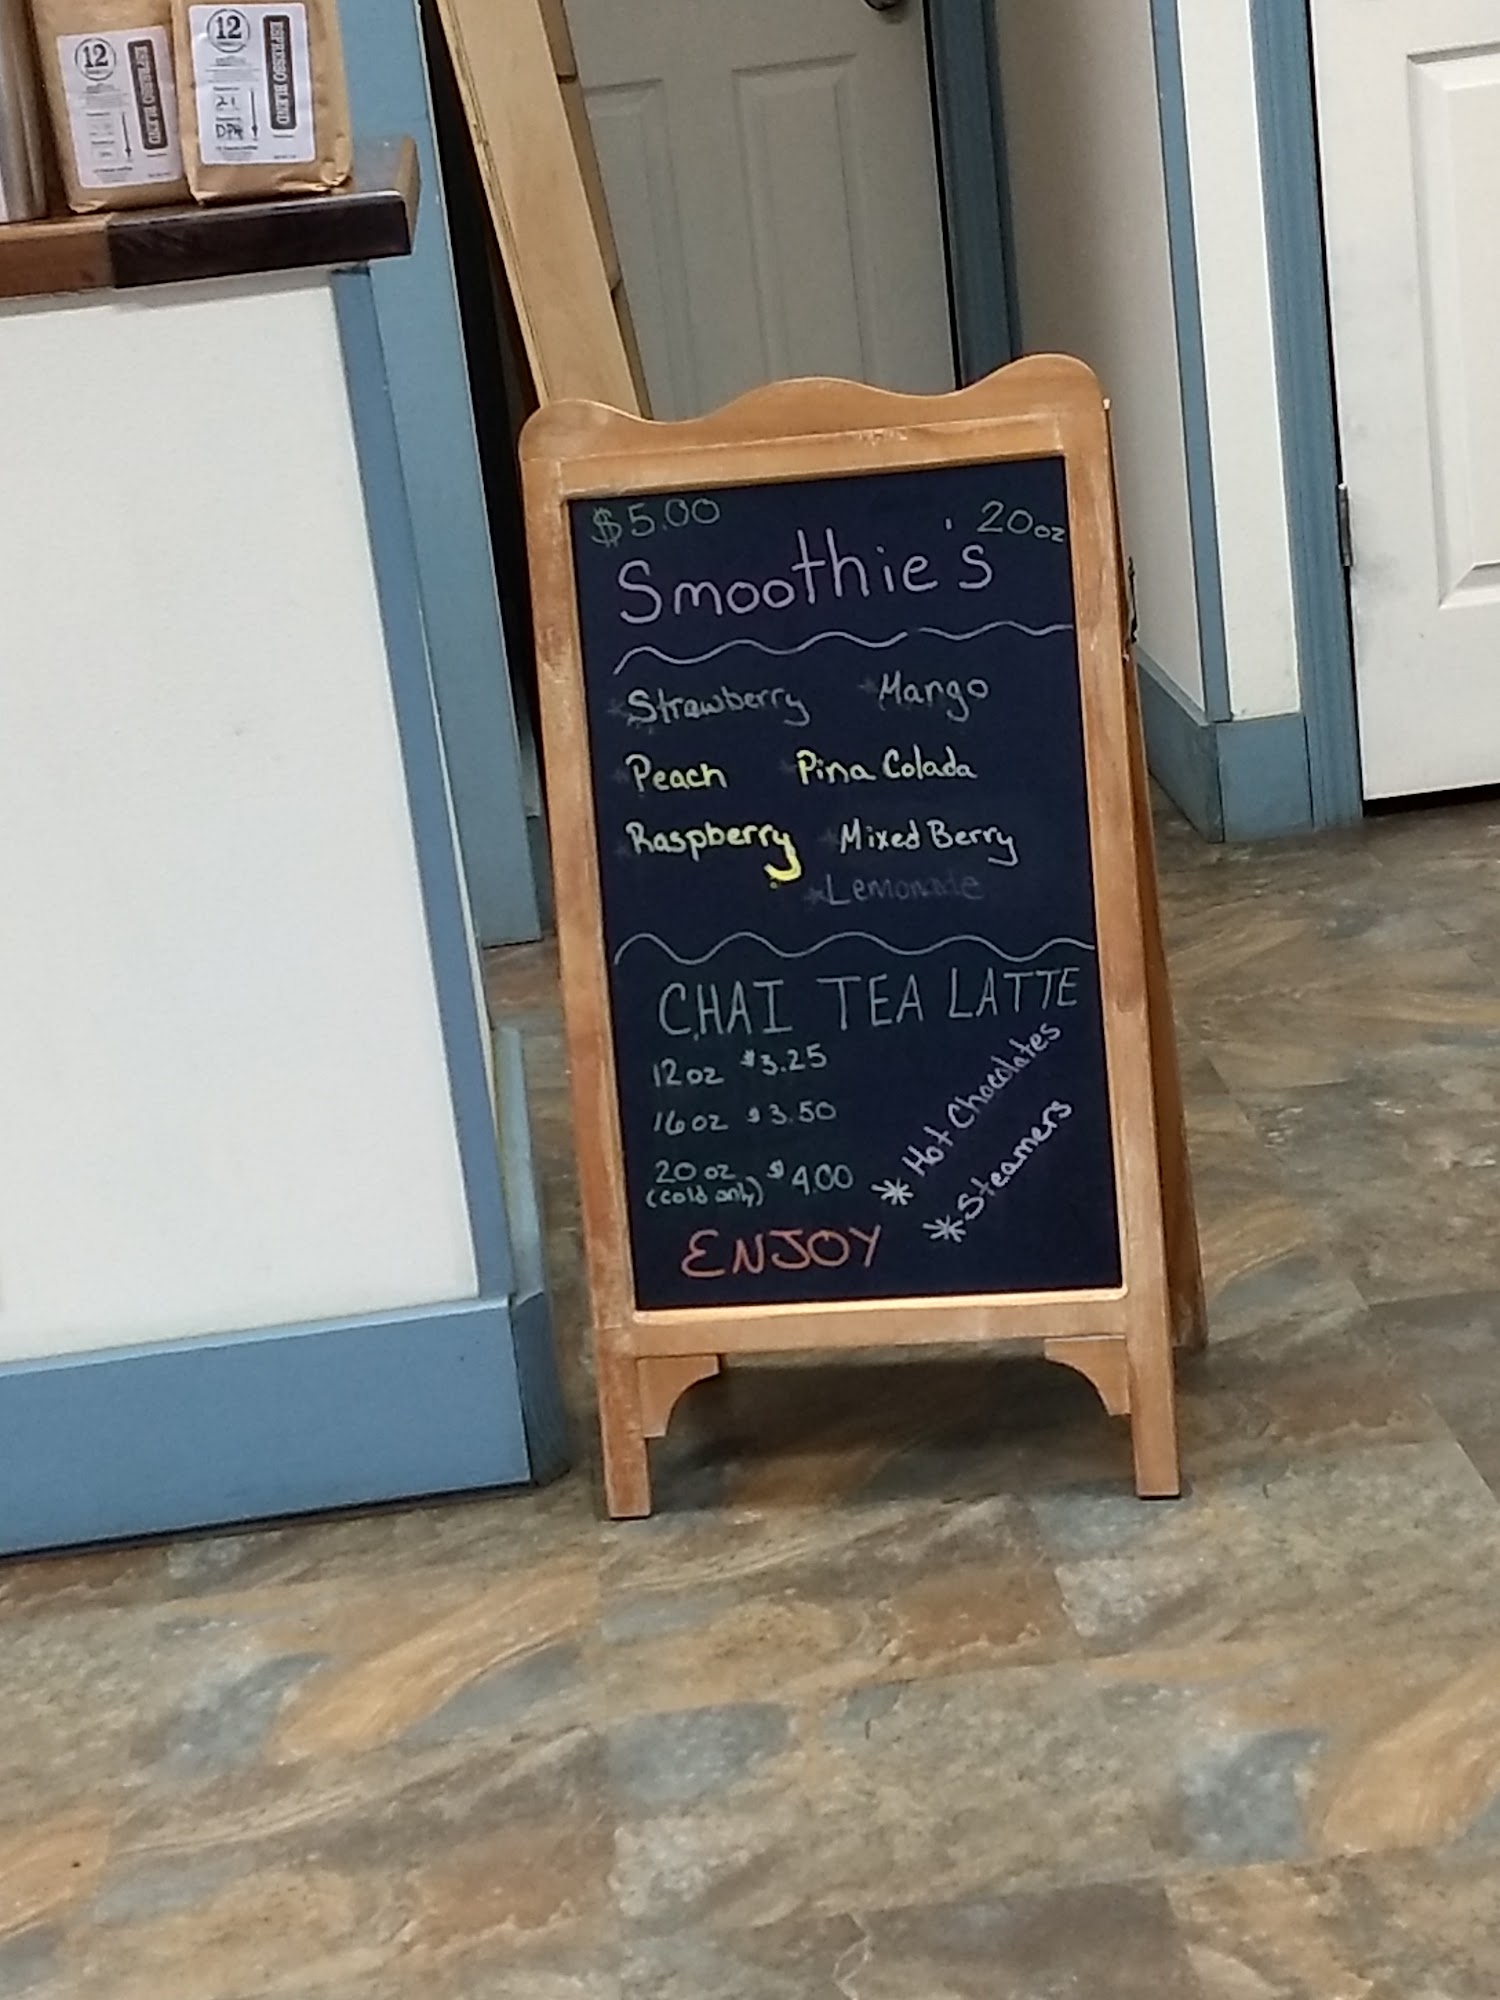 12
ESPRESSO BLEND
12
ESPRESSO BLEND
$5.00 20oz
Smoothie's
*Strawberry *Mango
Peach Pina Colada
Raspberry *Mixed Berry
*Lemonade
CHAI TEA LATTE
12oz $3.25
16oz $3.50
20oz $4.00
(cold only)
* Hot Chocolates
* Steamers
ENJOY